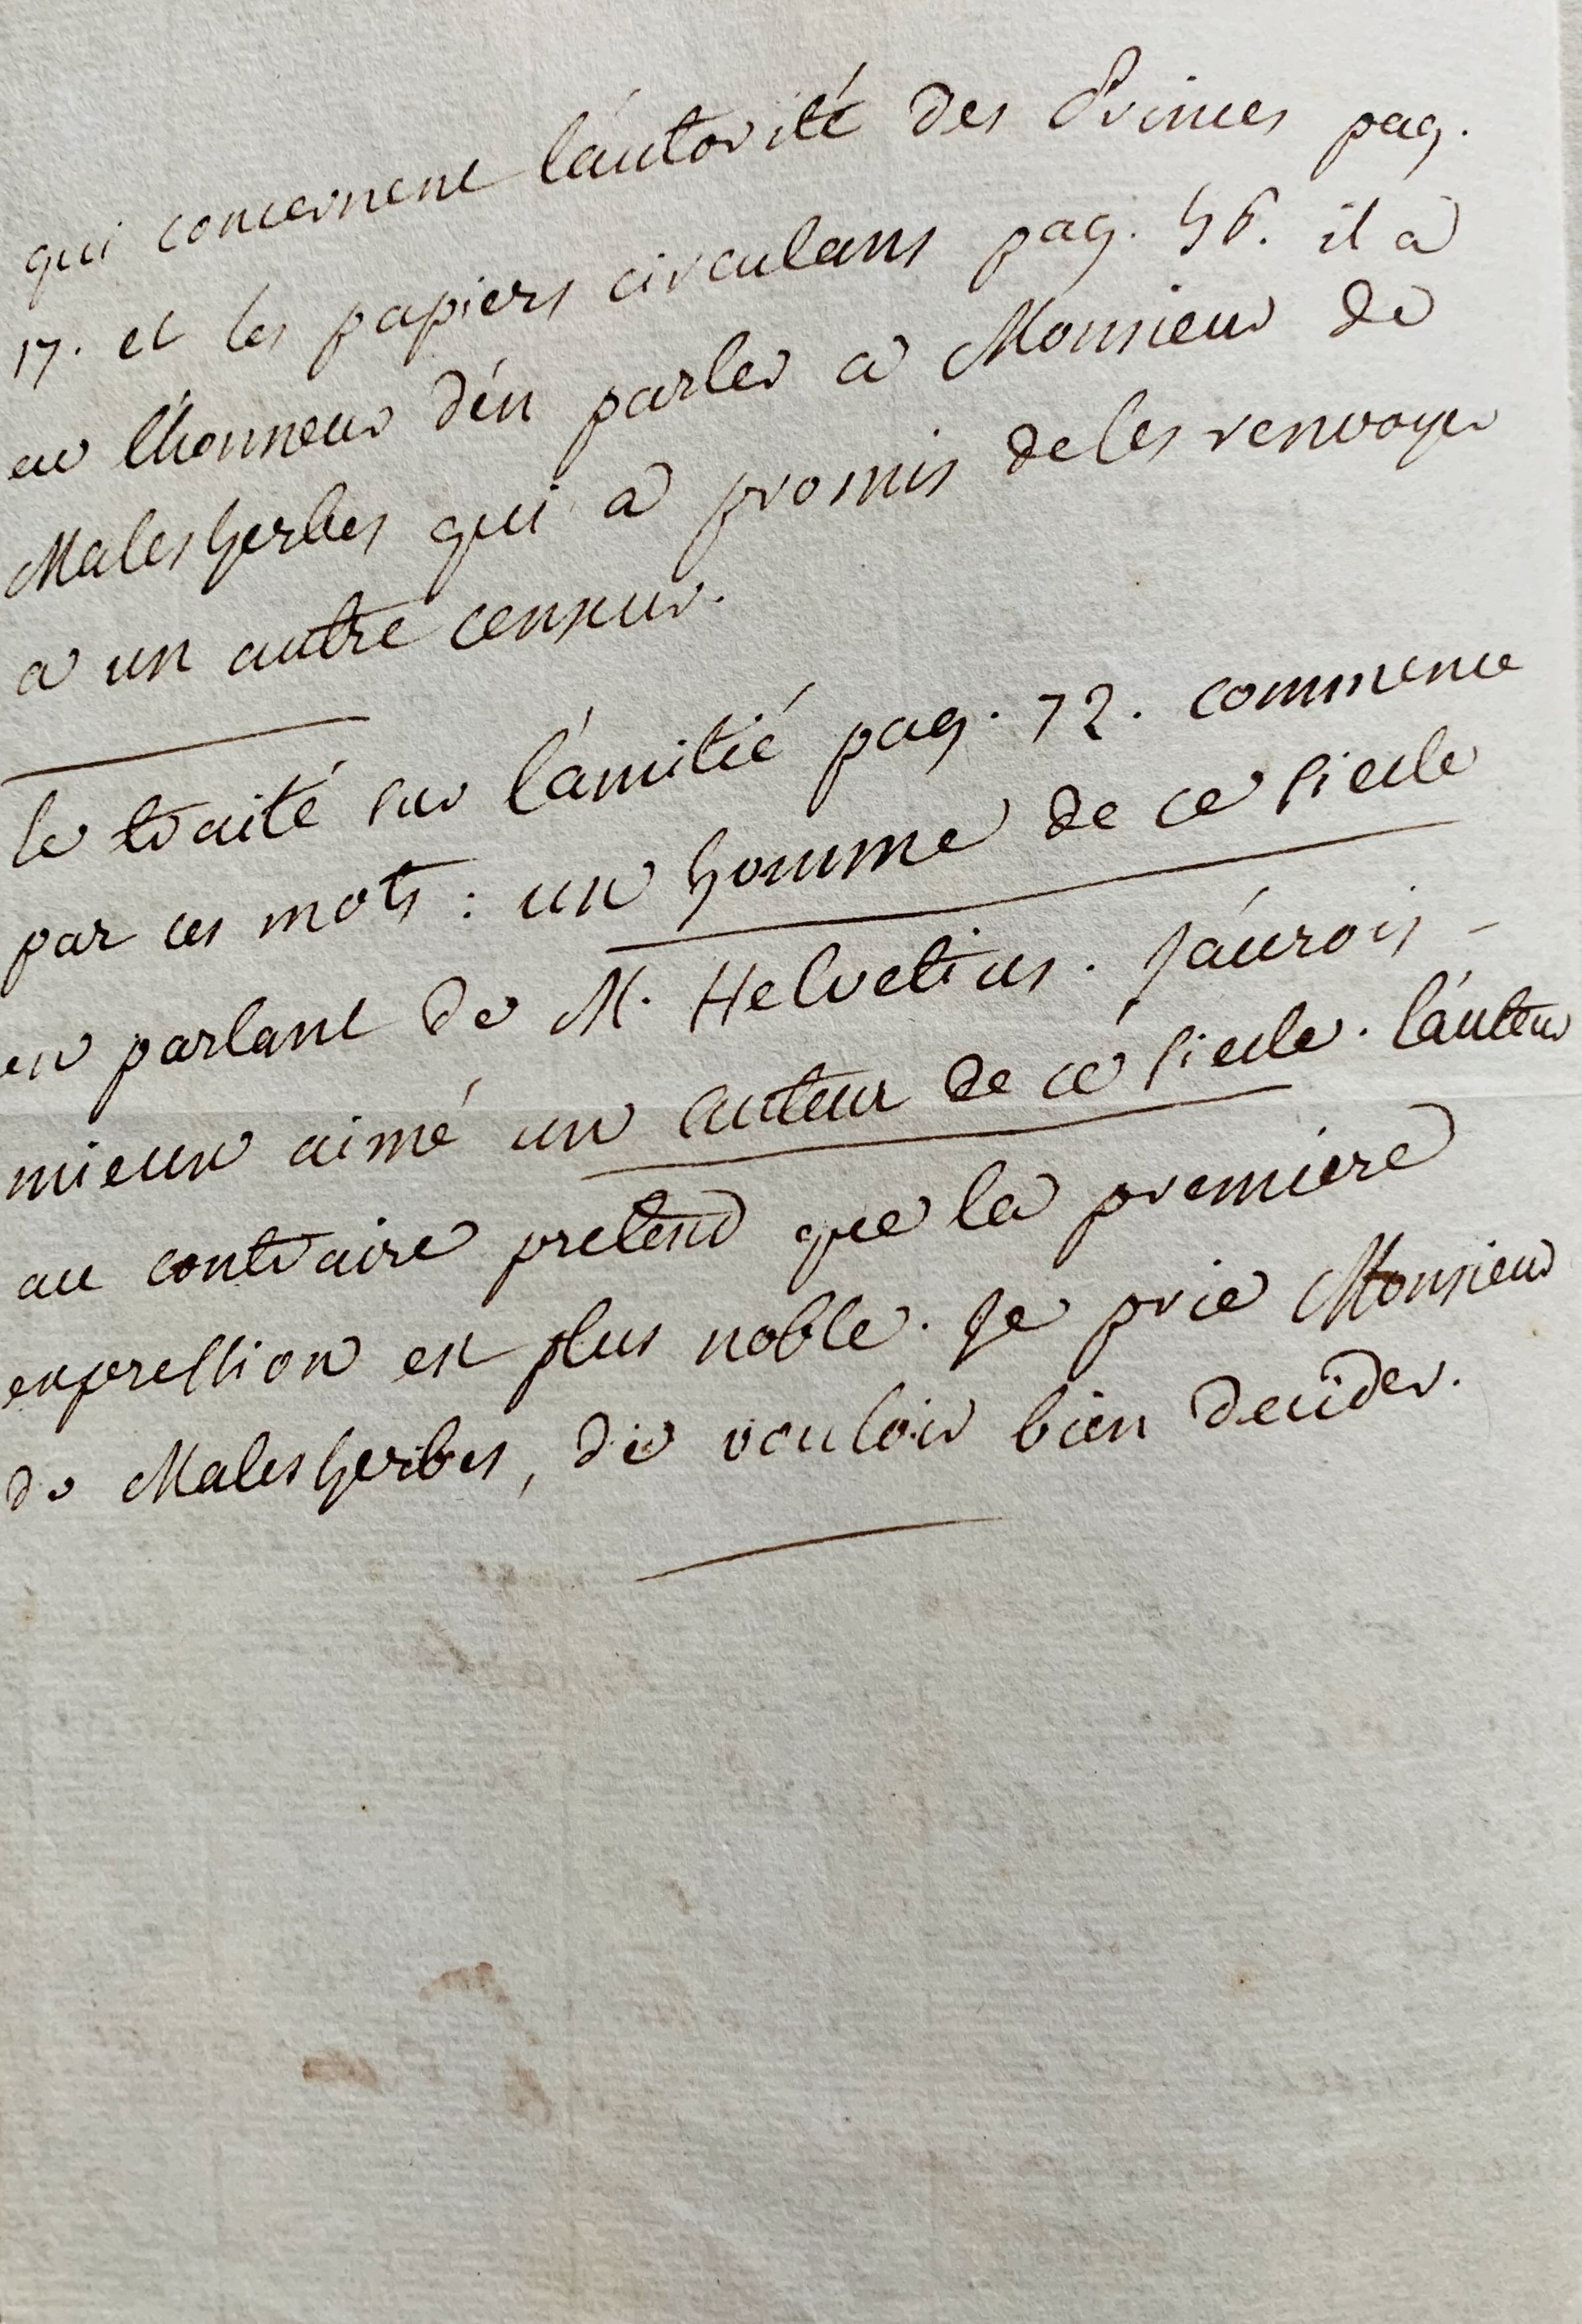 qui concernent l'autorité des Princes pag.
17. et les papiers circulans pag. 56. il a
eu l'honneur d'en parler a Monsieur de
Malesherbes qui a promis de les renvoyer
a un autre censeur.
le traité sur l'amitié pag. 72. commence
par ces mots : un homme de ce siecle
en parlant de M. Helvetius. J'aurois -
mieux aimé un auteur de ce siecle. l'auteur
au contraire pretend que la premiere
expression est plus noble. Je prie Monsieur
de Malesherbes, de vouloir bien decider.